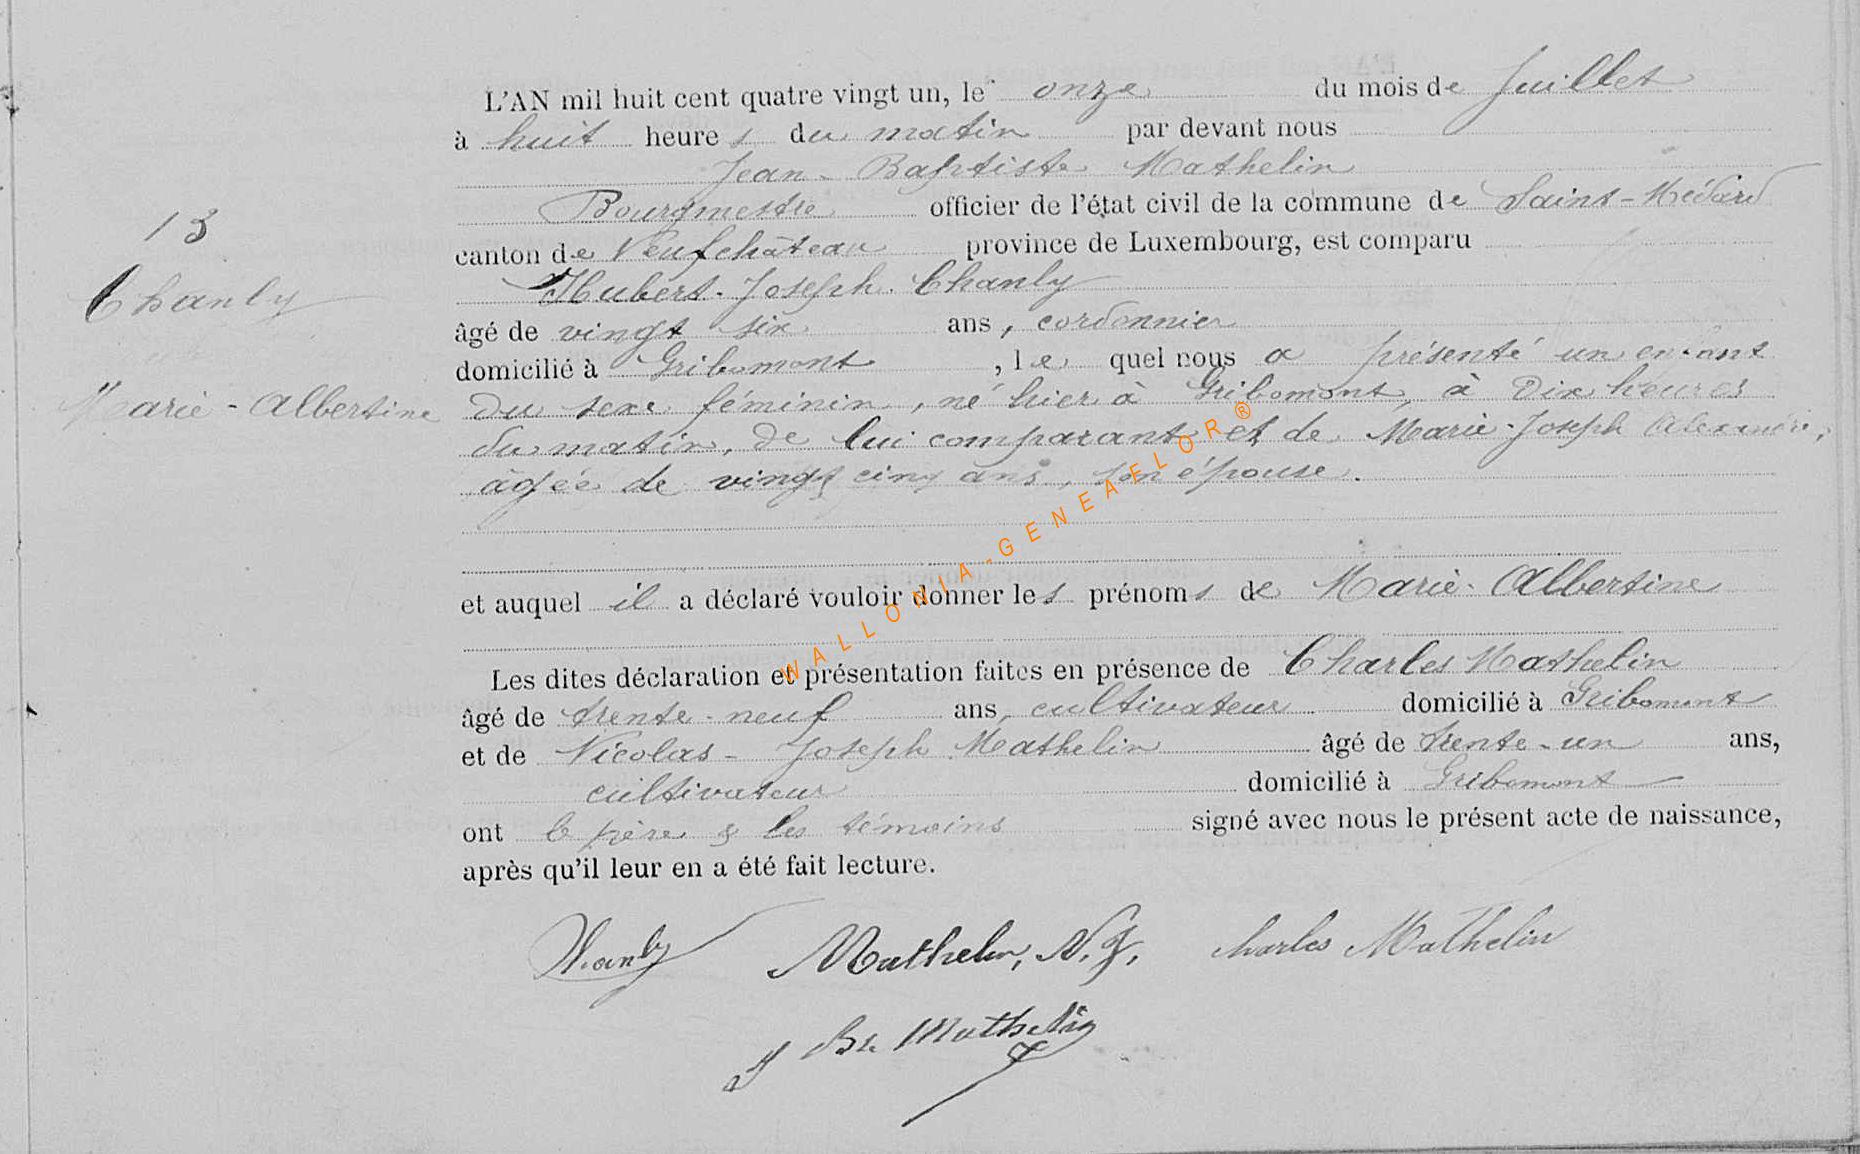 L'AN mil huit cent quatre vingt un, le onze du mois de Juillet
à huit heures du matin par devant nous
Jean-Baptiste Mathelin
Bourgmestre officier de l'état civil de la commune de Saint-Médard
canton de Neufchâteau province de Luxembourg, est comparu
Hubert-Joseph Chanly
âgé de vingt six ans, cordonnier
domicilié à Gribomont, le quel nous a présenté un enfant
du sexe féminin, né hier à Gribomont, à Dix heures
du matin, de lui comparant et de Marie-Joseph Alexandre,
âgée de vingt cinq ans, son épouse.
et auquel il a déclaré vouloir donner les prénoms de Marie-Albertine
Les dites déclaration et présentation faites en présence de Charles Mathelin
âgé de trente-neuf ans, cultivateur domicilié à Gribomont
et de Nicolas-Joseph Mathelin âgé de trente-un ans,
cultivateur domicilié à Gribomont
ont le père & les témoins signé avec nous le présent acte de naissance,
après qu'il leur en a été fait lecture.
13
Chanly
Marie-Albertine
Chanly Mathelin, N. J. Charles Mathelin
J Bte Mathelin
WALLONIA-GENEAFLOR®